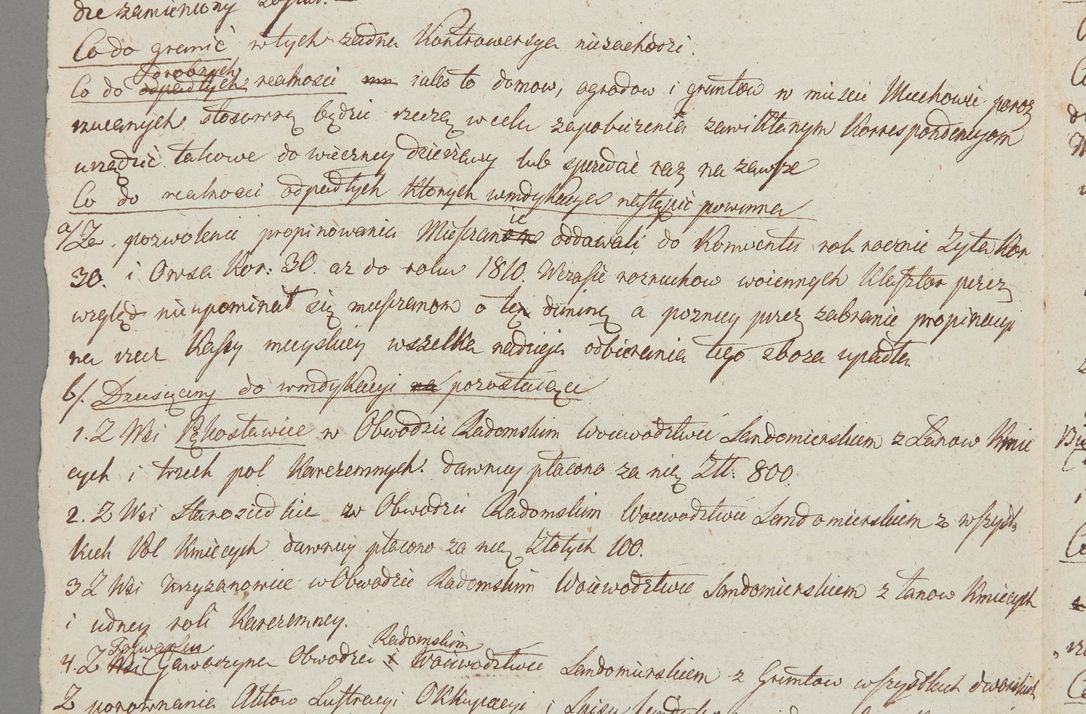 die zamieniony
Co do granic w tych żadna Kontrowersya niezachodzi.
Co do odpadłych drobnych realności iako to domow, ogrodow i gruntow w mieście Miechowie poroz
rzucanych stosowną będzie rzeczą w celu zapobieżenia zawikłanym Korrespondencyom
urządzić takowe do wieczney dzierżawy lub sprzedać raz na zawsze
Co do realności odpadłych ktorych windykacya nastąpić powinna
a/ Za pozwolenie propinowania Mieszczanie oddawali do Konwentu rok rocznie Żyta Kor
30. i Owsa Kor: 30. aż do roku 1810. W czasie rozruchow woiennych Klasztor przez
wzgląd nieupominał się mieszczanom o tę daninę a poźniey przez zabranie propinacyi
na rzecz Kassy mieyskiey wszelka nadzieja odbierania tego zboża upadła
b/. Dziesięciny do windykacyi na pozostaiące
1. Z Wsi Rękostawice w Obwodzie Radomskim Woiewodztwie Sandomierskiem z Łanow Kmie
cych i trzech pol Karczemnych. dawniey płacono za nię Zł: 800.
2. Z Wsi Starosiedlice w Obwodzie Radomskim Woiewodztwie Sandomierskiem z wszyst
kich Pol Kmiecych dawniey płacono za nię Złotych 100.
3 Z Wsi Krzyżanowice w Obwodzie Radomskim Woiewodztwie Sandomierskiem z łanow Kmiecych
i iedney roli Karczemney.
4. Z Wsi Folwarku Gawarzyna Obwodzie Radomskim Woiewodztwie Sandomierskiem z Gruntow wszystkich dworskich
Z porownania Aktow Lustracyi Okkupacyi i